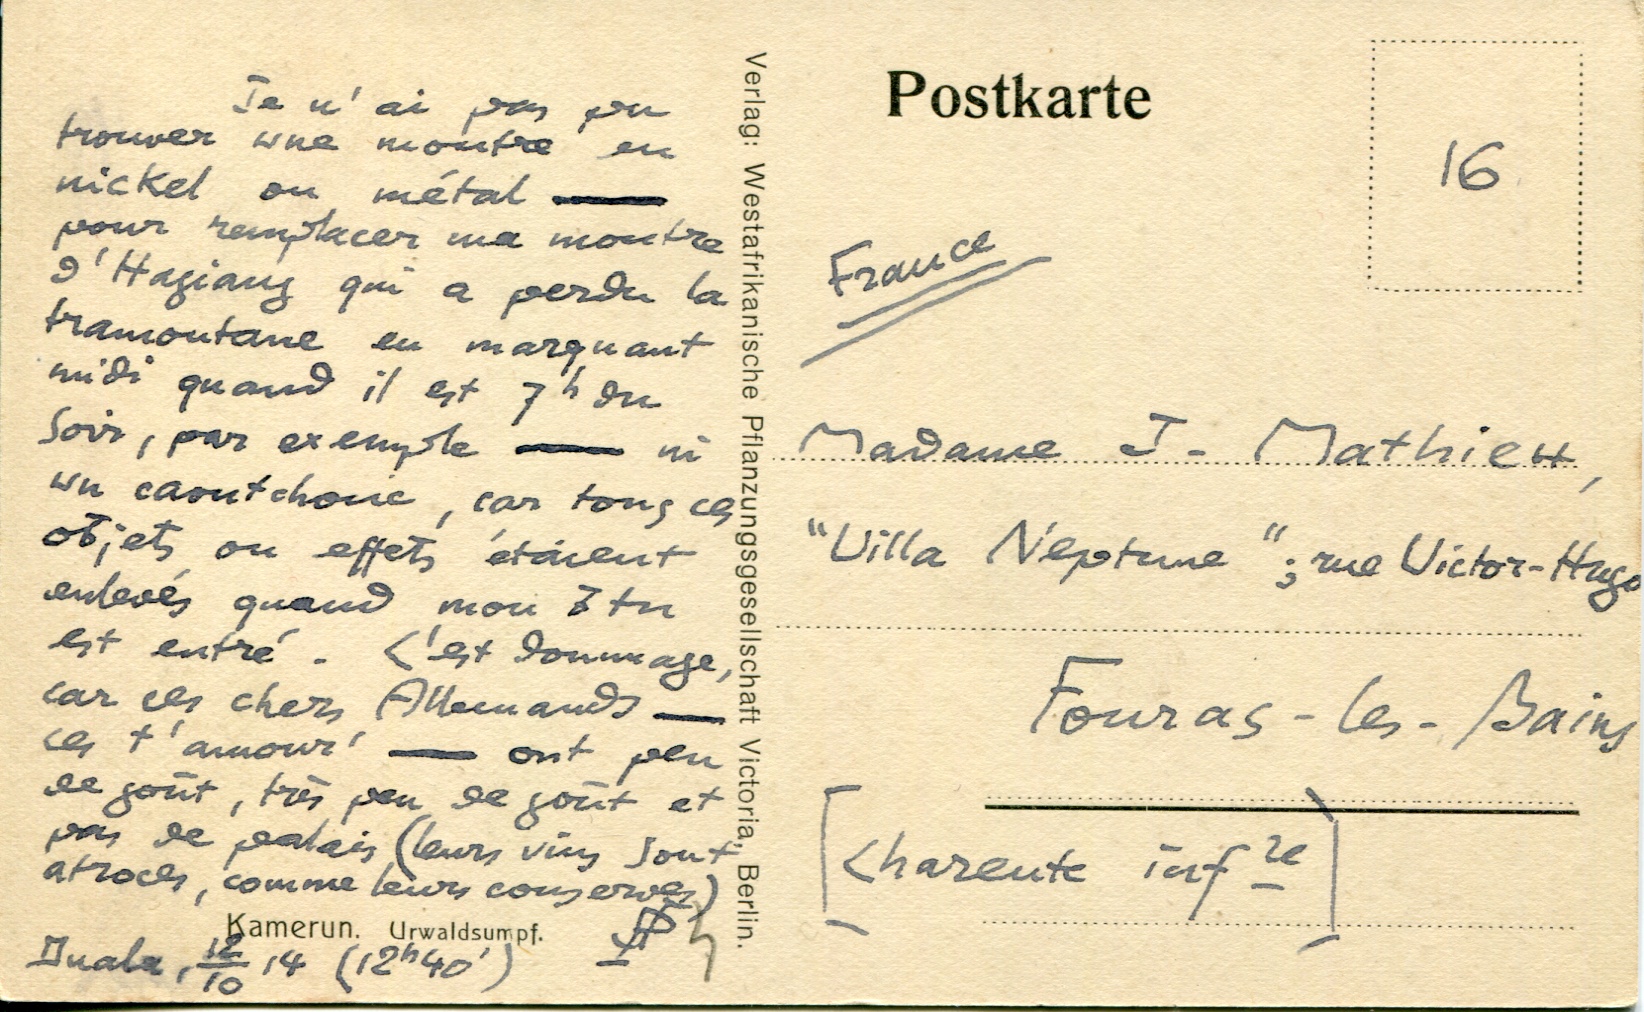 Je n'ai pas pu
trouver une montre en
nickel ou métal —
pour remplacer ma montre
d'Hagiang qui a perdu la
tramontane en marquant
midi quand il est 7h du
soir, par exemple — ni
un caoutchouc, car tous ces
objets ou effets étaient
enlevés quand mon
est entré. C'est dommage,
car ces chers Allemands —
ces t'amour' — ont peu
de goût, très peu de goût et
pas de palais (leurs vins sont
atroces, comme leurs conserves)
Kamerun. Urwaldsumpf.
Duala, 12/10 14 (12h40')
Verlag: Westafrikanische Pflanzungsgesellschaft Victoria, Berlin.
Postkarte
16
France
Madame J. Mathieu,
"Villa Neptune"; rue Victor-Hugo
Fouras-les-Bains
[Charente infre]